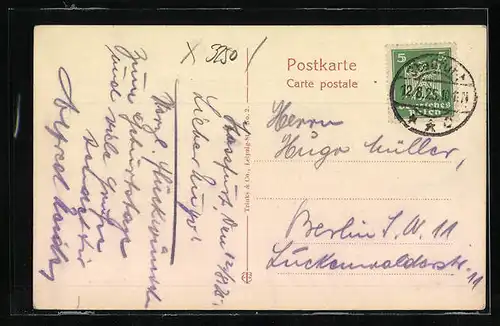 × 3250
Postkarte
Carte postale
5
5
Deutsches
Reich
Herrn
Hugo Müller,
Berlin S.W. 11
Luckenwalderstr. 11
Trinks & Co., Leipzig
den 12/8 25.
Lieber Hugo!
Herzl. Glückwünsche
zum Geburtstage
und viele Grüße